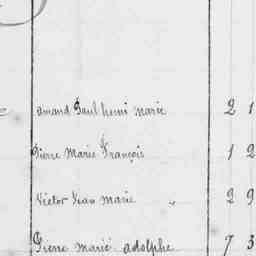 amand Paul henri marie 2 1
Pierre Marie François 1 2
Victor Jean marie 2 9
Pierre marie adolphe 7 3